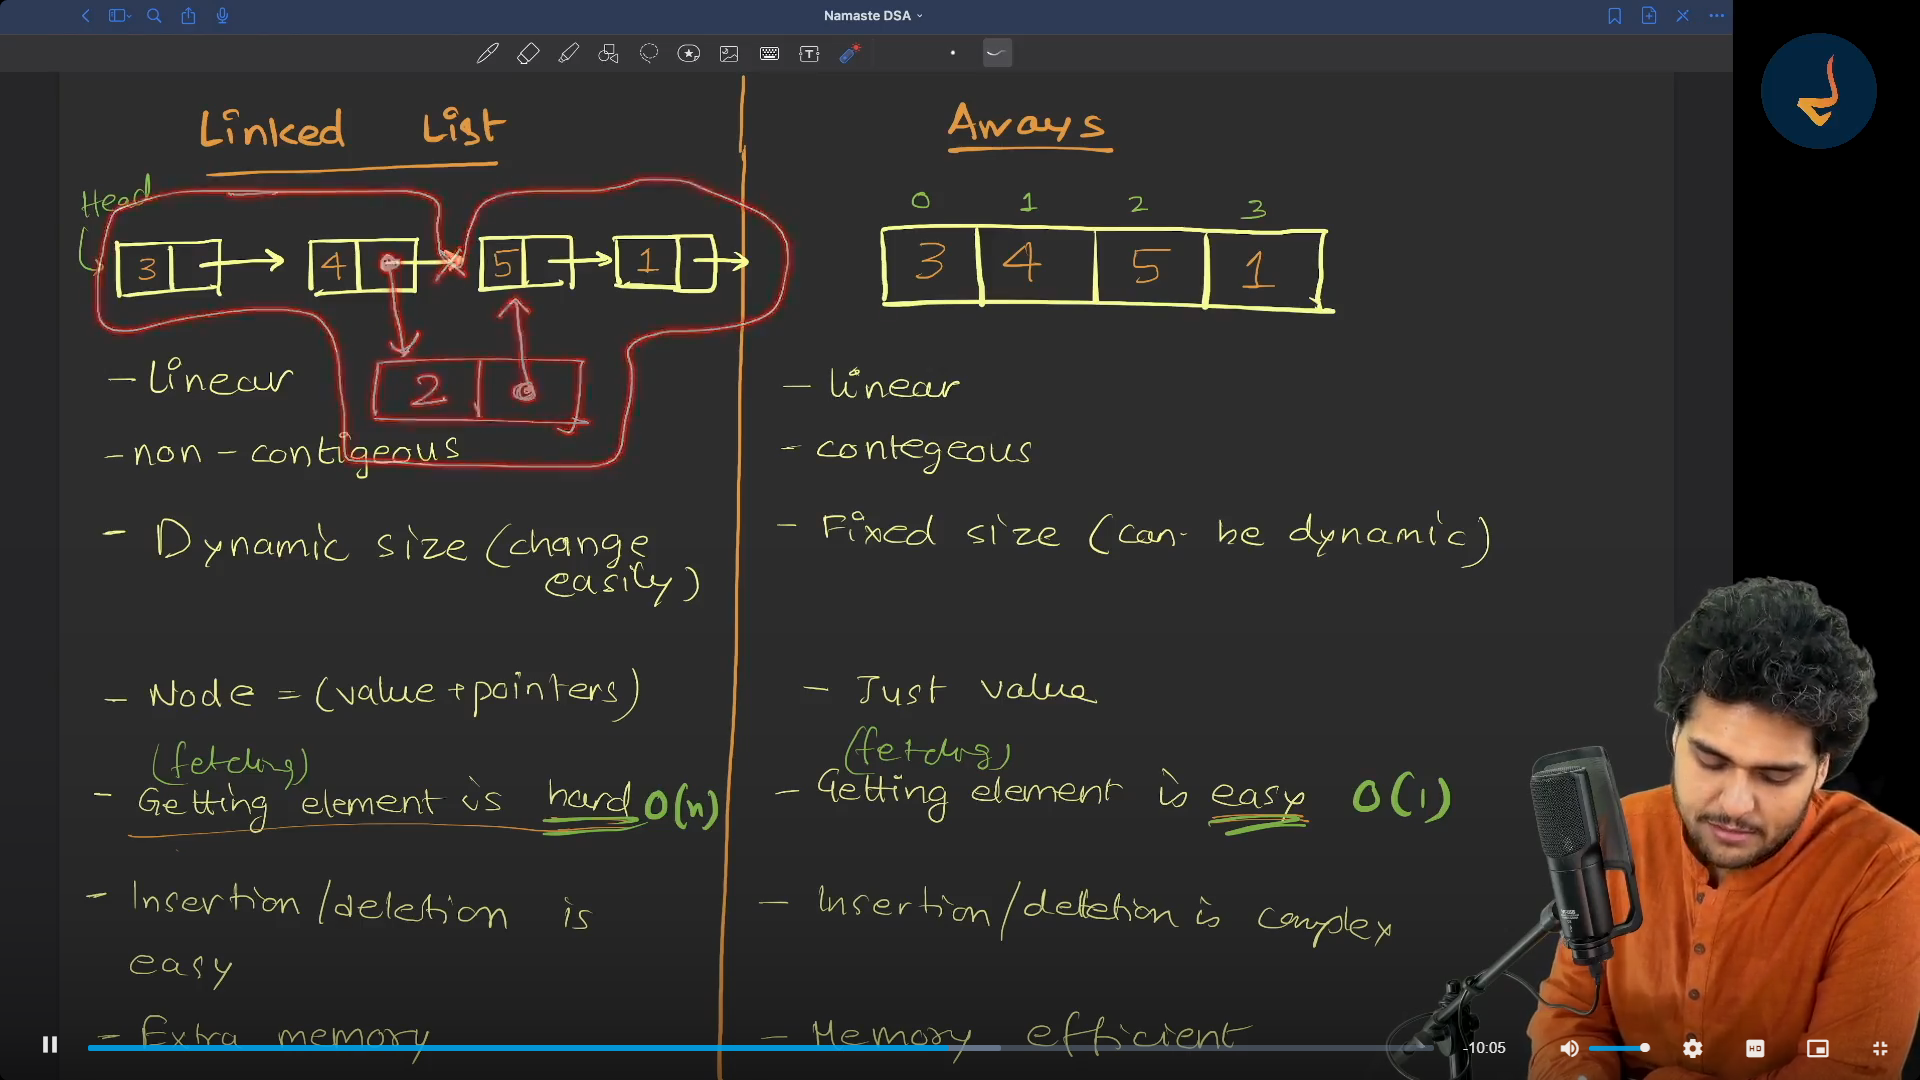 Namaste DSA
Linked List
Head
3 4 5 1
2
- Linear
- non-contigeous
- Dynamic size (change
easily)
- Node = (value + pointers)
(fetching)
- Getting element is hard O(n)
- Insertion/deletion is
easy
- Extra memory
Arrays
0 1 2 3
3 4 5 1
- linear
- contegeous
- Fixed size (can be dynamic)
- Just value
(fetching)
- Getting element is easy O(1)
- Insertion/deletion is complex
- Memory efficient
-10:05
HD